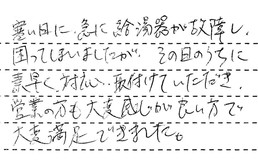 寒い日に、急に給湯器が故障し、
困ってしまいましたが、その日のうちに
素早く対応、取付けていただき、
営業の方も大変感じが良い方で
大変満足できました。